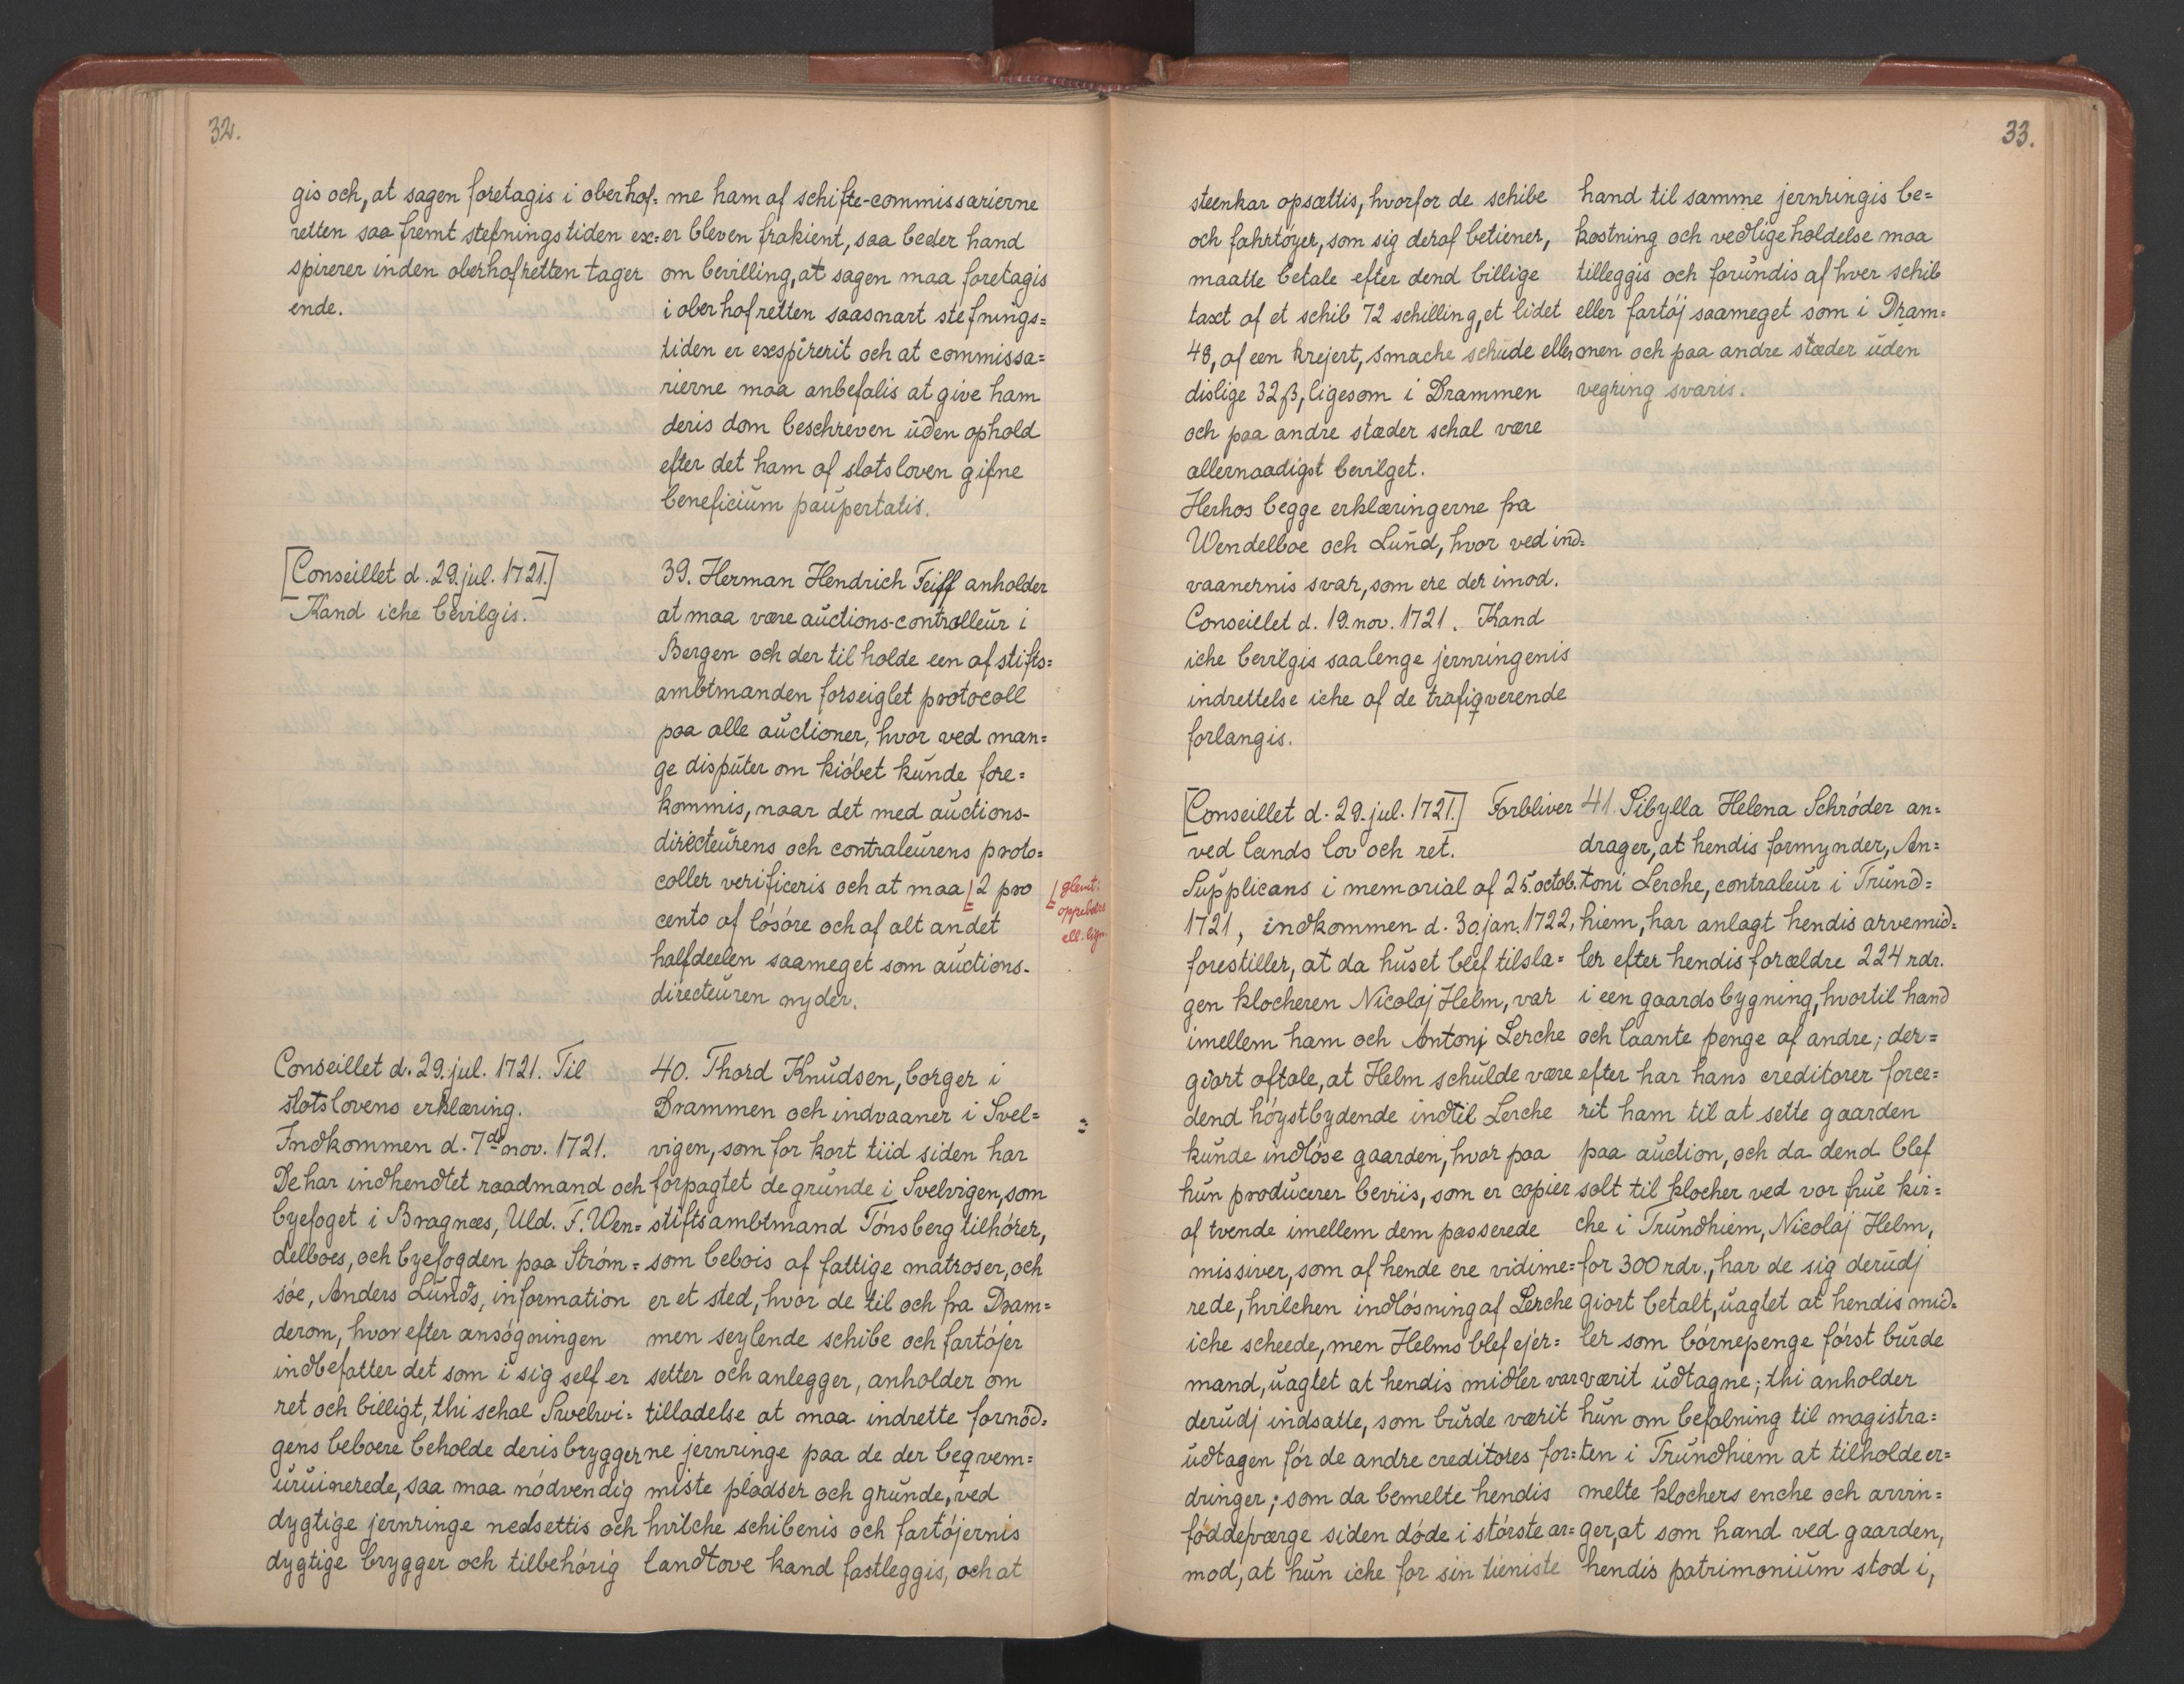 32.
gis och, at sagen foretagis i oberhof=
retten saa fremt stefningstiden ex=
spirerer inden oberhofretten tager
ende.
me ham af schifte-commissarierne
er bleven frakient, saa beder hand
om bevilling, at sagen maa foretagis
i oberhofretten saasnart stefnings=
tiden er exspirerit och at commissa=
rierne maa anbefalis at give ham
deris dom beschreven uden ophold
efter det ham af slotsloven gifne
beneficium paupertatis.
[Conseillet d. 29. jul. 1721.]
Kand iche bevilgis.
39. Herman Hendrich Feiff anholder
at maa være auctions-controlleur i
Bergen och der til holde een af stifts=
ambtmanden forseiglet protocoll
paa alle auctioner, hvor ved man=
ge disputer om kiöbet kunde fore=
kommis, naar det med auctions-
directeurens och contraleurens proto=
coller verificeris och at maa 2 pro
cento af lösöre och af alt andet
halfdeelen saameget som auctions-
directeuren nyder.
glemt:
oppebære
ell. lign.
Conseillet d. 29. jul. 1721. Til
slotslovens erklæring.
Indkommen d. 7de nov. 1721.
De har indhendtet raadmand och
byefoget i Bragnæs, Uld. F. Wen=
delboes, och byefogden paa Ström=
söe, Anders Lunds, information
derom, hvor efter ansögningen
indbefatter det som i sig self er
ret och billigt, thi schal Swelwi=
gens beboere beholde deris brygger
uruinerede, saa maa nödvendig
dygtige jernringe nedsettis och
dygtige brygger och tilbehörig
40. Thord Knudsen, borger i
Drammen och indvaaner i Svel=
vigen, som for kort tiid siden har
forpagtet de grunde i Svelvigen, som
stiftsambtmand Tönsberg tilhörer,
som bebois af fattige matroser, och
er et sted, hvor de til och fra Dram=
men seylende schibe och fartöjer
setter och anlegger, anholder om
tilladelse at maa indrette fornöd=
ne jernringe paa de der beqvem=
miste pladser och grunde, ved
hvilche schibenis och fartöjernis
landtove kand fastleggis, och at
33.
steenkar opsættis, hvorfor de schibe
och fahrtöyer, som sig deraf betiener,
maatte betale efter dend billige
taxt af et schib 72 schilling, et lidet
48, af een krejert, smache schude eller
dislige 32 β, ligesom i Drammen
och paa andre stæder schal være
allernaadigst bevilget.
Herhos begge erklæringerne fra
Wendelboe och Lund, hvor ved ind=
vaanernis svar, som ere der imod.
Conseillet d. 19. nov. 1721. Kand
iche bevilgis saalenge jernringenis
indrettelse iche af de trafiqverende
forlangis.
hand til samme jernringis be=
kostning och vedligeholdelse maa
tilleggis och forundis af hver schib
eller fartöj saameget som i Dram=
men och paa andre stæder uden
vegring svaris.
[Conseillet d. 29. jul. 1721.] Forbliver
ved lands lov och ret.
Supplicans i memorial af 25. octob.
1721, indkommen d. 30. jan. 1722,
forestiller, at da huset blef tilsla=
gen klocheren Nicolaj Helm, var
imellem ham och Antonj Lerche
giort aftale, at Helm schulde være
dend höystbydende indtil Lerche
kunde indlöse gaarden, hvor paa
hun producerer beviis, som er copier
af tvende imellem dem passerede
missiver, som af hende ere vidime=
rede, hvilchen indlösning af Lerche
iche scheede, men Helms blef ejer=
mand, uagtet at hendis midler var
derudj indsatte, som burde værit
udtagen för de andre creditores for=
dringer; som da bemelte hendis
föddeværge siden döde i störste ar=
mod, at hun iche for sin tieniste
41. Sibylla Helena Schröder an=
drager, at hendis formynder, An=
toni Lerche, contraleur i Trund=
hiem, har anlagt hendis arvemid=
ler efter hendis forældre 224 rdr.
i een gaards bygning, hvortil hand
och laante penge af andre; der=
efter har hans creditorer force=
rit ham til at sette gaarden
paa auction, och da dend blef
solt til klocher ved vor frue kir=
che i Trundhiem, Nicolaj Helm,
for 300 rdr., har de sig derudj
giort betalt, uagtet at hendis mid=
ler som börnepenge först burde
værit udtagne; thi anholder
hun om befalning til magistra=
ten i Trundhiem at tilholde er=
melte klochers enche och arvin=
ger, at som hand ved gaarden,
hendis patrimonium stod i,